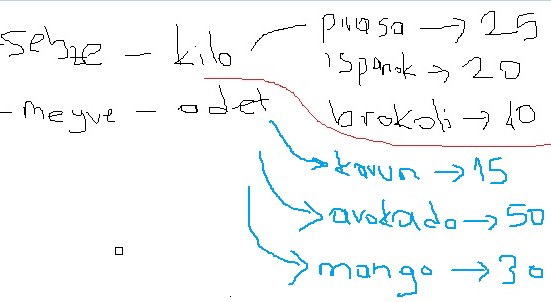 Sebze - kilo
pırasa → 25
ıspanak → 20
brokoli → 10
- meyve - adet
kavun → 15
avokado → 50
mango → 30